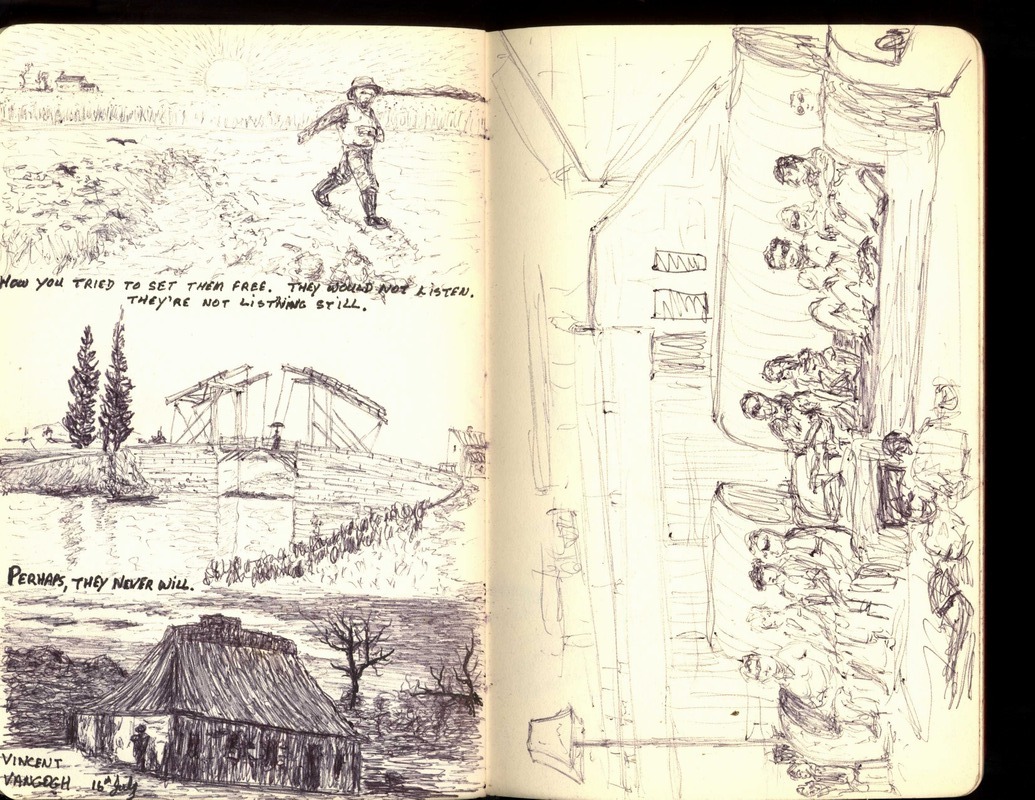 HOW YOU TRIED TO SET THEM FREE. THEY WOULD NOT LISTEN.
THEY'RE NOT LISTNING STILL.
PERHAPS, THEY NEVER WILL.
VINCENT
VANGOGH 16th July